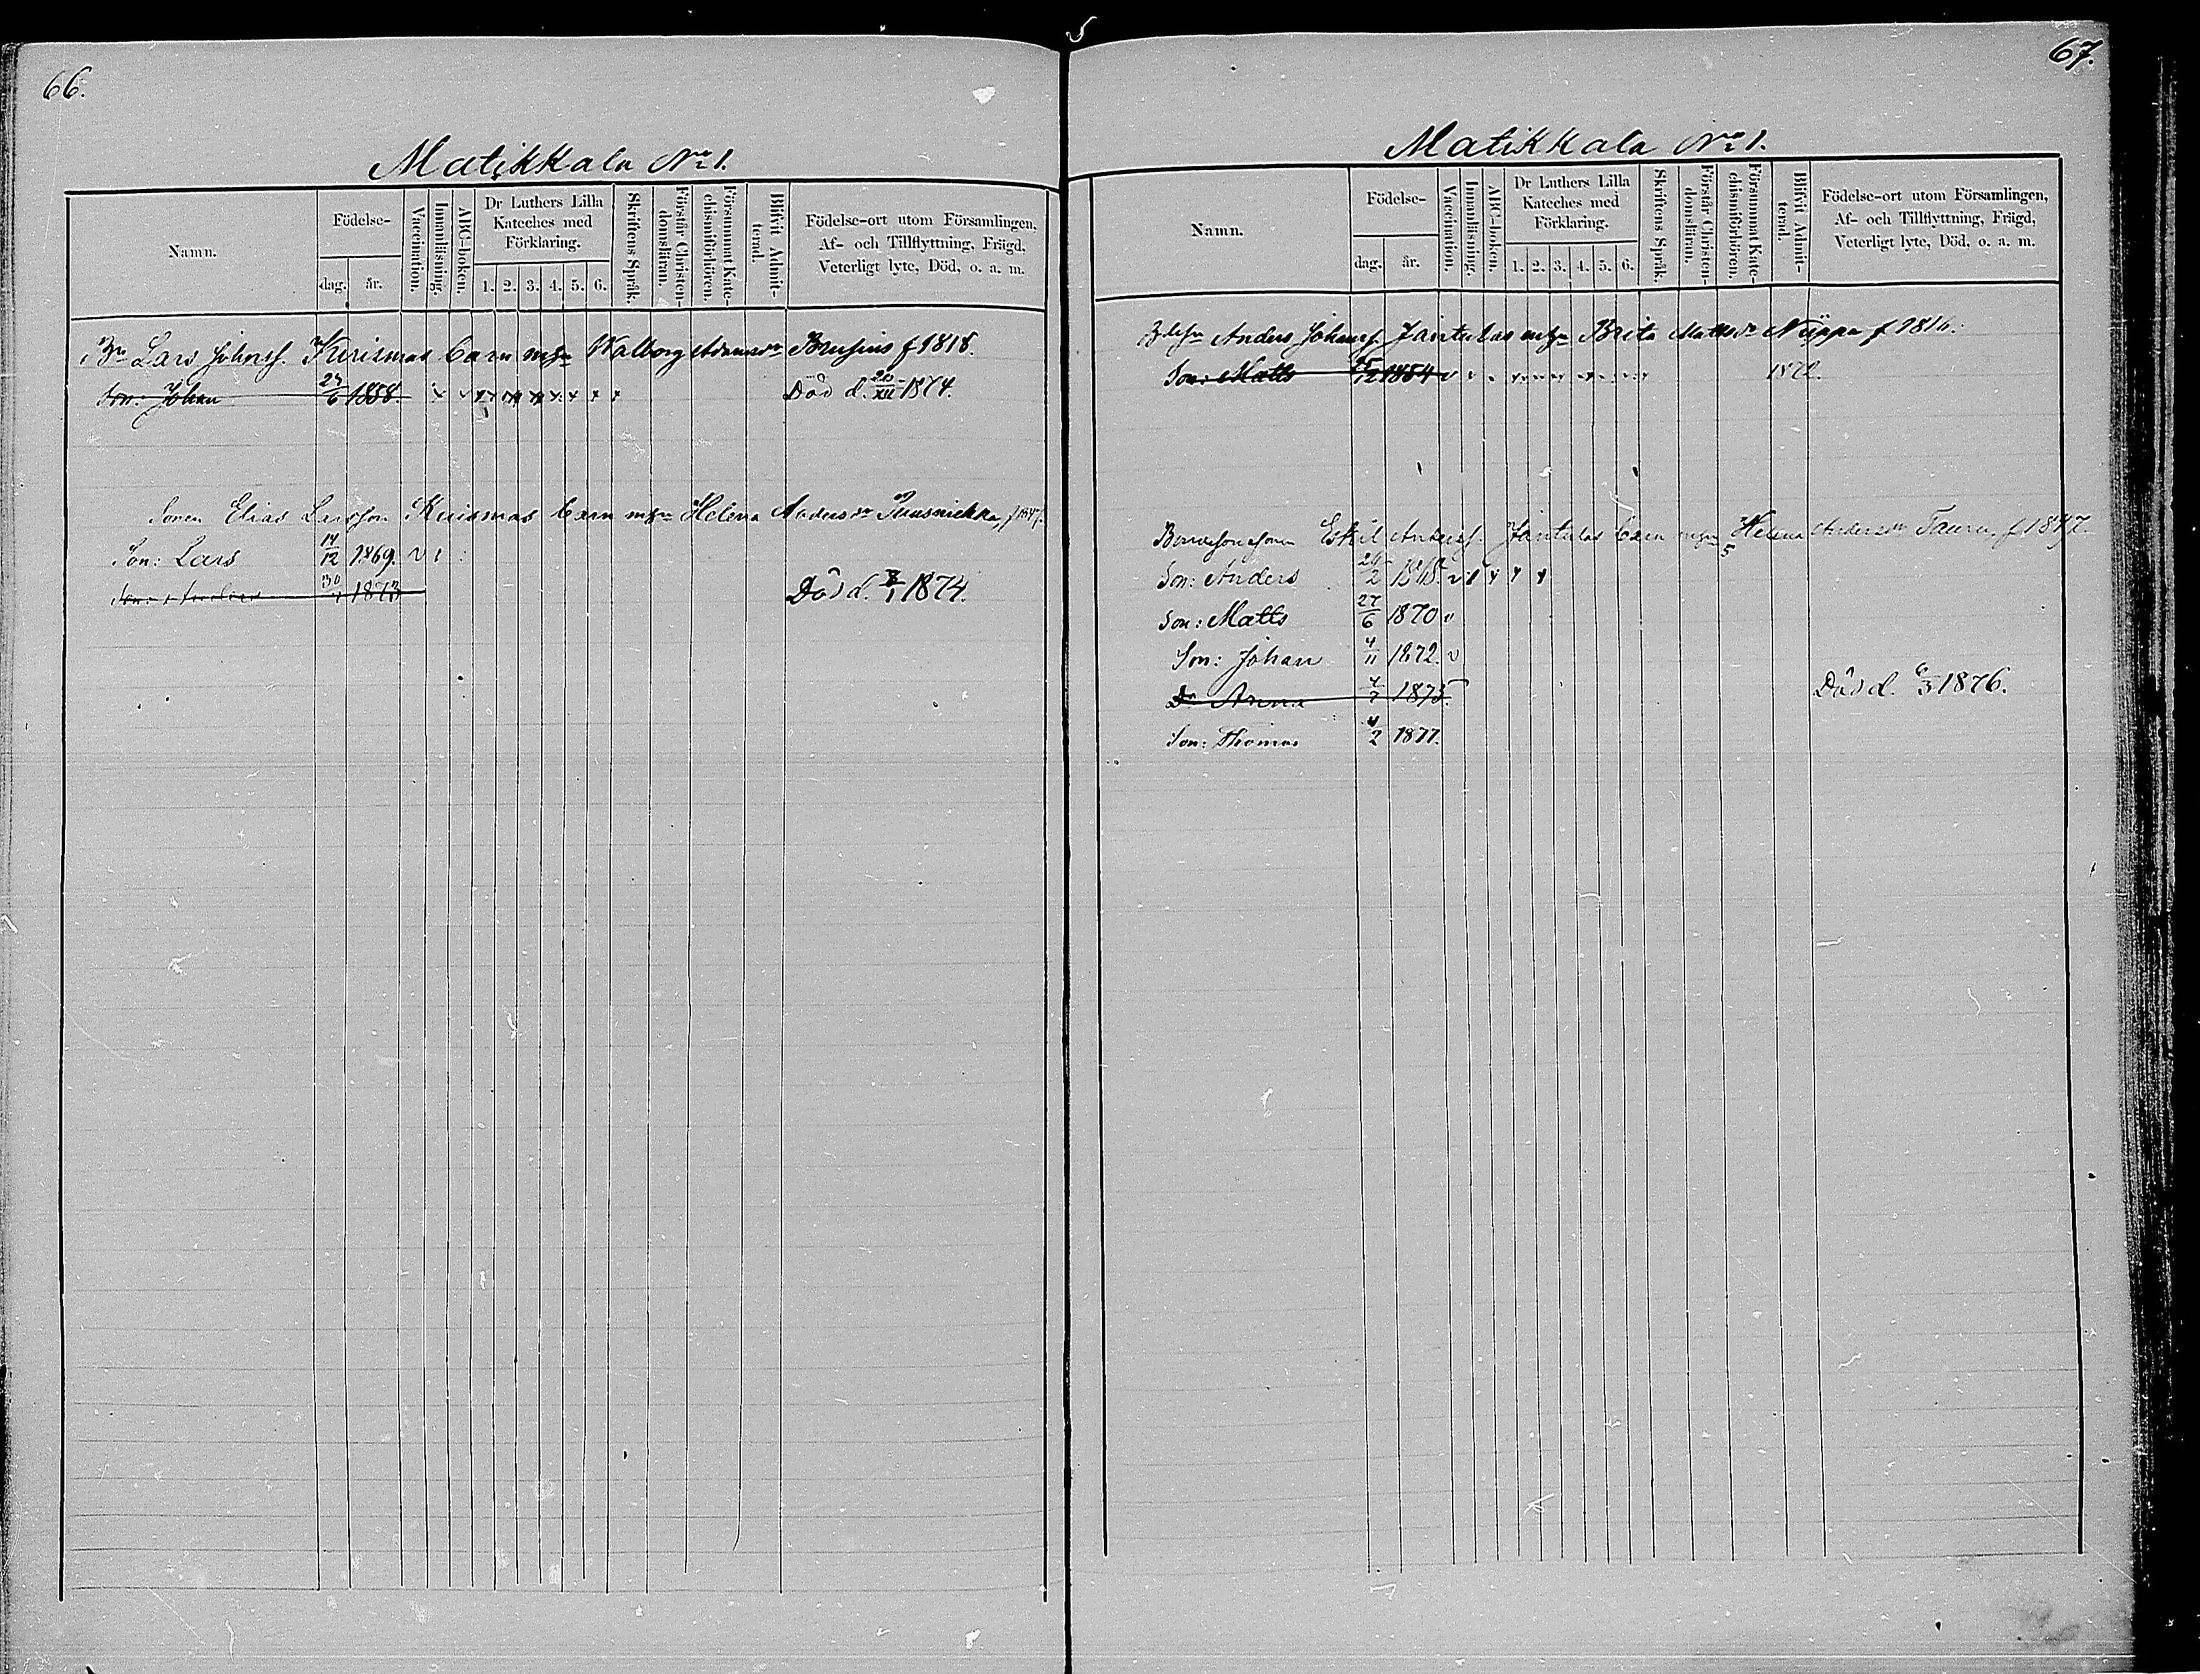 66.
Matikkala No 1.
Namn.
Födelse-
dag.
år.
Vaccination.
Innanläsning.
ABC-boken.
Dr Luthers Lilla
Kateches med
Förklaring.
1. 2. 3. 4. 5. 6.
Skriftens Språk.
Förstår Christen-
domsläran.
Försummat Kate-
chismiförhören.
Blifvit Admit-
terad.
Födelse-ort utom Församlingen,
Af- och Tillflyttning, Frägd,
Veterligt lyte, Död, o. a. m.
Lars Johansf. Kuismas barn m. hu Walborg Adamsdr Brusius f 1818.
Son: Johan 6 1858. Död d. 1874.
Sonen Elias Larsson Kuismas barn m. hu Helena Andersdr
Son: Lars 14/12 1869. v
30 1873 Död d. 1874.
67.
Matikkala No 1.
Namn.
Födelse-
dag.
år.
Vaccination.
Innanläsning.
ABC-boken.
Dr Luthers Lilla
Kateches med
Förklaring.
1. 2. 3. 4. 5. 6.
Skriftens Språk.
Förstår Christen-
domsläran.
Försummat Kate-
chismiförhören.
Blifvit Admit-
terad.
Födelse-ort utom Församlingen,
Af- och Tillflyttning, Frägd,
Veterligt lyte, Död, o. a. m.
Anders Johansf. Jäntulas m. hu Brita Mattsdr f 1816.
Son: Matts 12 1854
Eskil Andersf. Jäntulas barn m. hu Helena Andersdr Tauru, f 1847.
Son: Anders 2 1868. v
Son: Matts 27/6 1870 "
Son: Johan 4/11 1872. v
Dr Anna 1875. Död d. 6/3 1876.
Son: Thomas 4/2 1877.